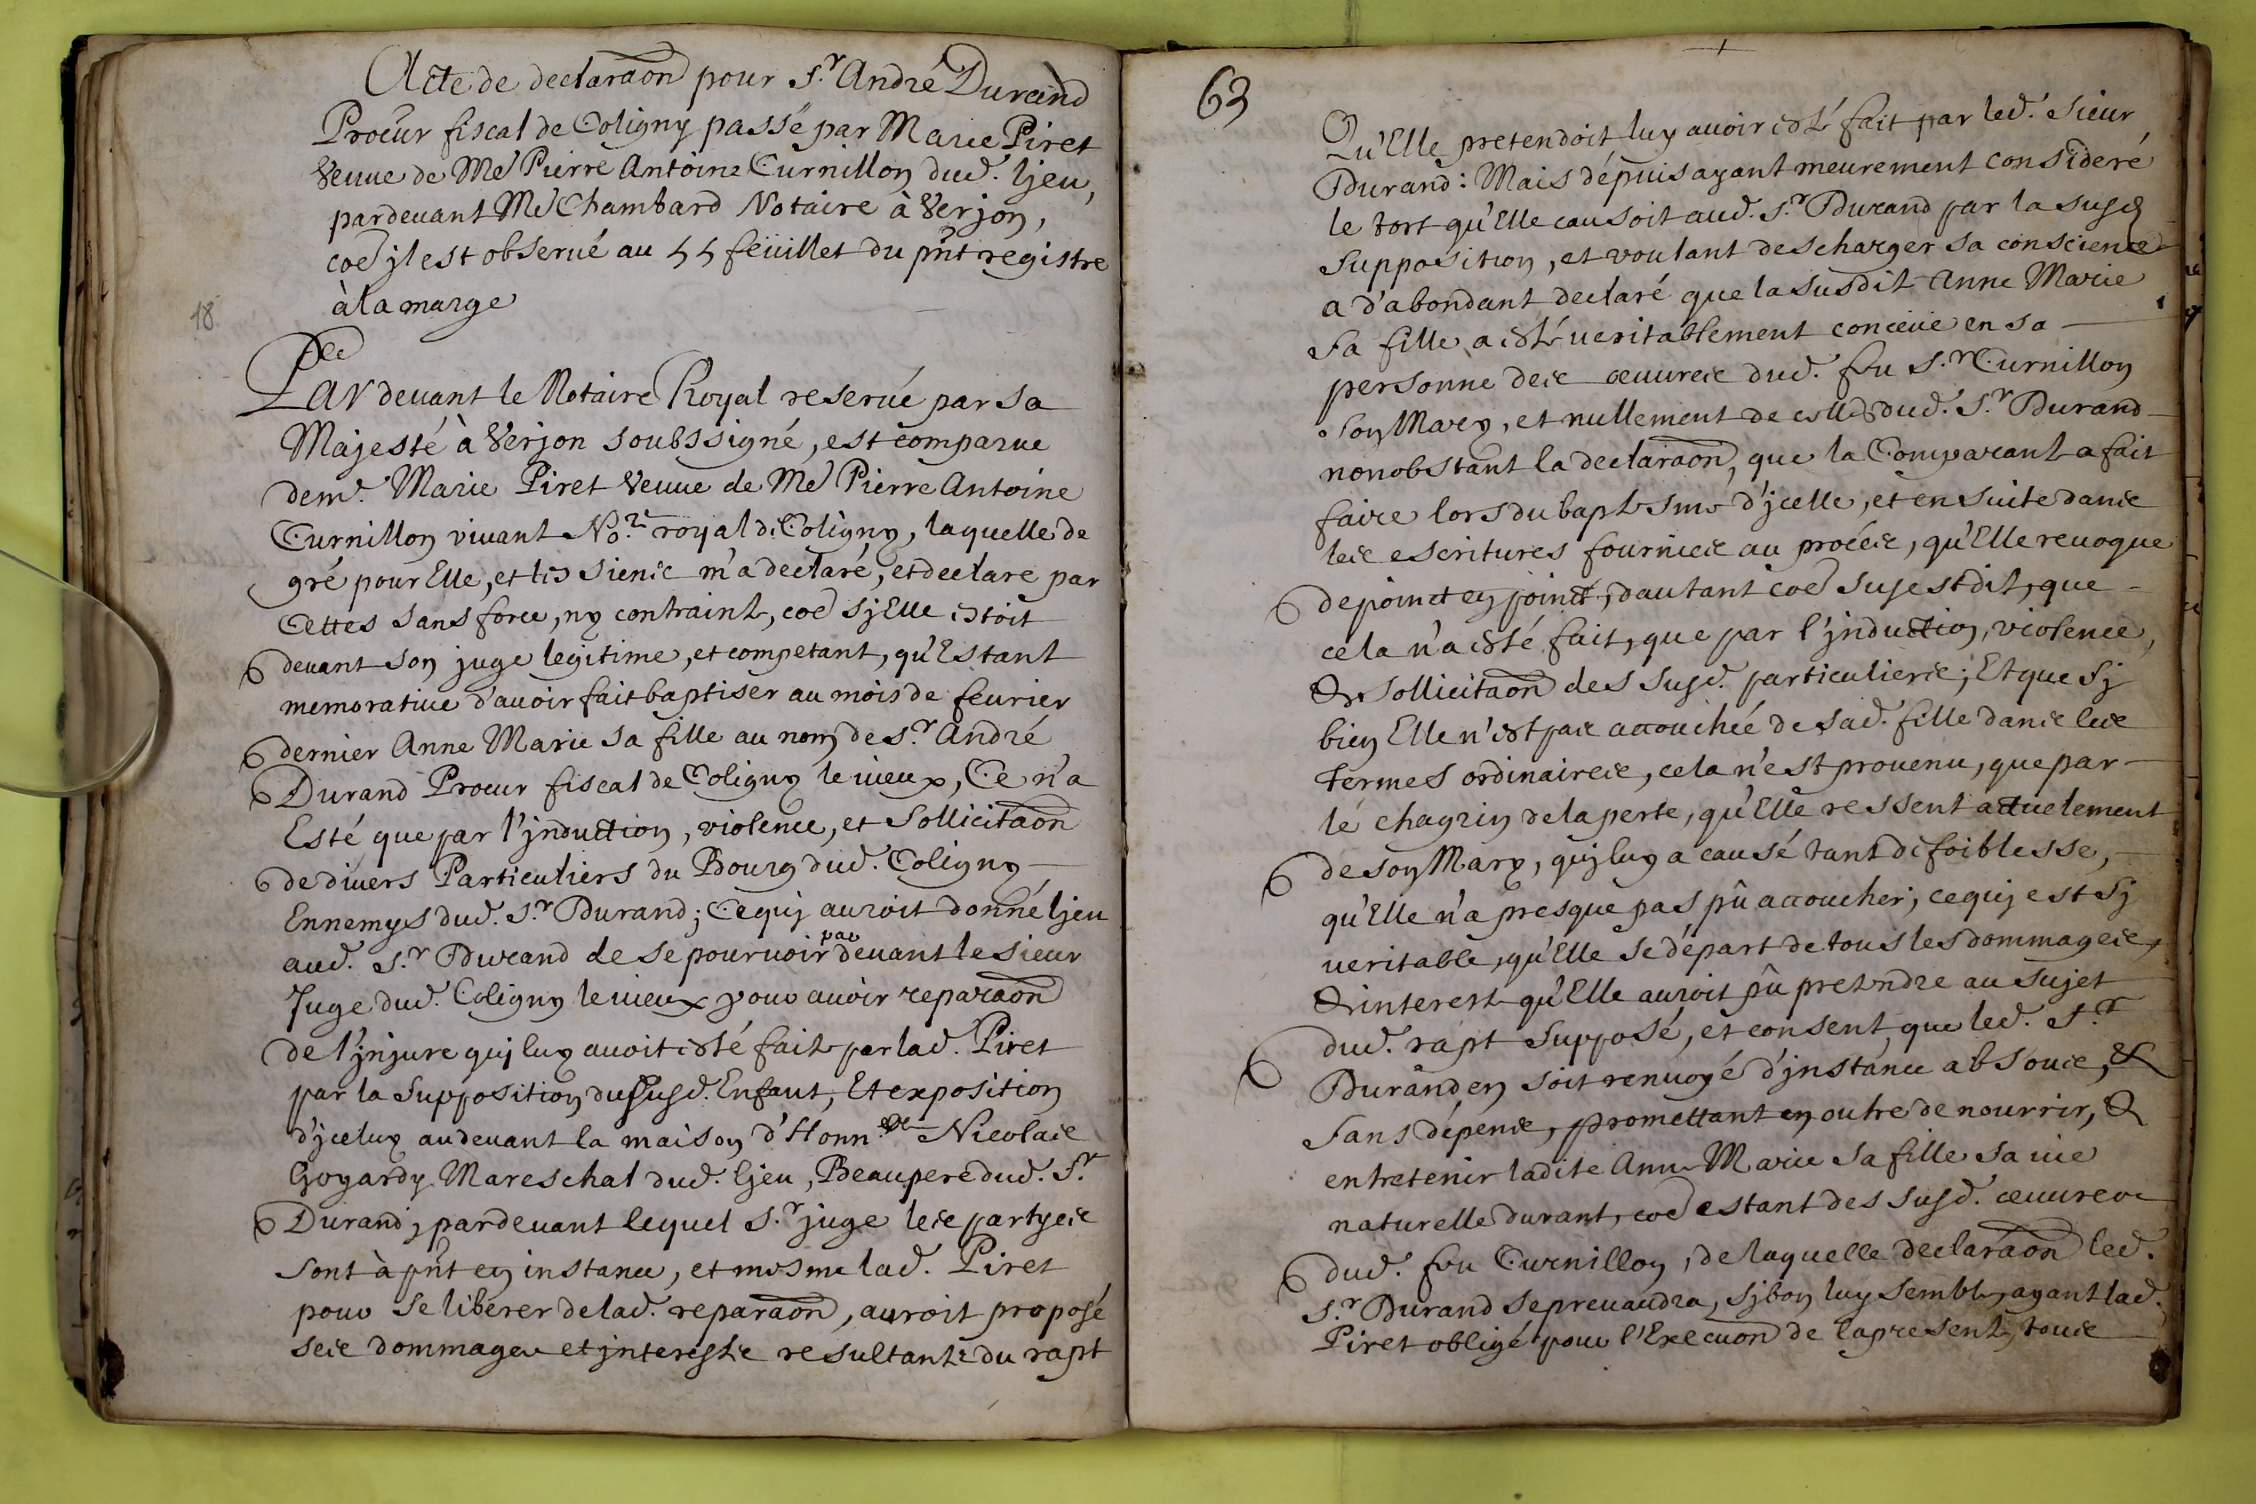 Acte de declaraon pour S.r André Durand
Procur fiscal de Coligny passé par Marie Piret
Veuue de Me Pierre Antoine Curnillon dud. ljeu,
pardeuant Me Chambard Notaire à Verjon,
coe jl est obserué au 55 feüillet du pnt registre
à la marge
18
Par deuant le Notaire Royal reserué par sa
Majesté à Verjon soubssigné, est comparue
dem.e Marie Piret Veuue de Me Pierre Antoine
Curnillon viuant No.re royal de Coligny, laquelle de
gré pour Elle, et les siens m'a declaré, et declare par
Cettes sans force, ny contraint, coe sj Elle estoit
deuant son juge legitime, et competant, qu'Estant
memoratiue d'auoir fait baptiser au mois de feurier
dernier Anne Marie sa fille au nom de S.r André
Durand Procur fiscal de Coligny le vieux, Ce n'a
Esté que par l'jnduction, violence, et Sollicitaon
de diuers Particuliers du Bourg dud. Coligny
Ennemys dud. S.r Durand; Ce quj auroit donné ljeu
aud. S.r Durand de se pouruoir par deuant le sieur
Juge dud. Coligny le vieux pour auoir reparaon
de l'jnjure quj luy auoit esté fait par lad. Piret
par la Supposition du susd. Enfant, Et exposition
d'jceluy au deuant la maison d'Honn.ble Nicolas
Goyardy Mareschal dud. ljeu, Beaupere dud. S.r
Durand, pardeuant lequel S.r juge les partyes
sont à pnt en instance, et mesme lad. Piret
pour se liberer de lad. reparaon, auroit proposé
ses dommages et jnterests resultants du rapt
63
Qu'Elle pretendoit luy auoir esté fait par led. sieur
Durand: Mais dépuis ayant meurement consideré
le tort qu'Elle causoit aud. S.r Durand par la susd
supposition, et voulant descharger sa conscience
a d'abondant declaré que la susdit Anne Marie
sa fille a esté ueritablement conceue en sa
personne des œuures dud. feu S.r Curnillon
son Mary, et nullement de celles dud. S.r Durand
nonobstant la declaraon, que la Comparant a fait
faire lors du baptesme d'jcelle, et en suite dans
les escritures fournies au procés, qu'Elle reuoque
de poinct en poinct, dautant coe sus est dit, que
cela n'a esté fait, que par l'jnduction, violence,
& Sollicitaon des susd. particuliers; Et que sj
bien Elle n'est pas accouchée de sad. fille dans les
termes ordinaires, cela n'est prouenu, que par
lé chagrin de la perte, qu'Elle ressent actuelement
de son Mary, quj luy a causé tant de foiblesse,
qu'Elle n'a presque pas pû accoucher; ce quj est sj
ueritable, qu'Elle se départ de tous les dommages,
& interest qu'Elle auroit pû pretendre au sujet
dud. rapt supposé, et consent, que led. S.r
Durand en soit renuoyé d'jnstance absous, &
sans dépens, promettant en outre de nourrir, &
entretenir ladite Anne Marie sa fille sa vie
naturelle durant, coe estant des susd. œuures
dud. feu Curnillon, de laquelle declaraon led.
S.r Durand se preuaudra, sj bon luy semble, ayant lad.
Piret obligé pour l'Execuon de la present, tous